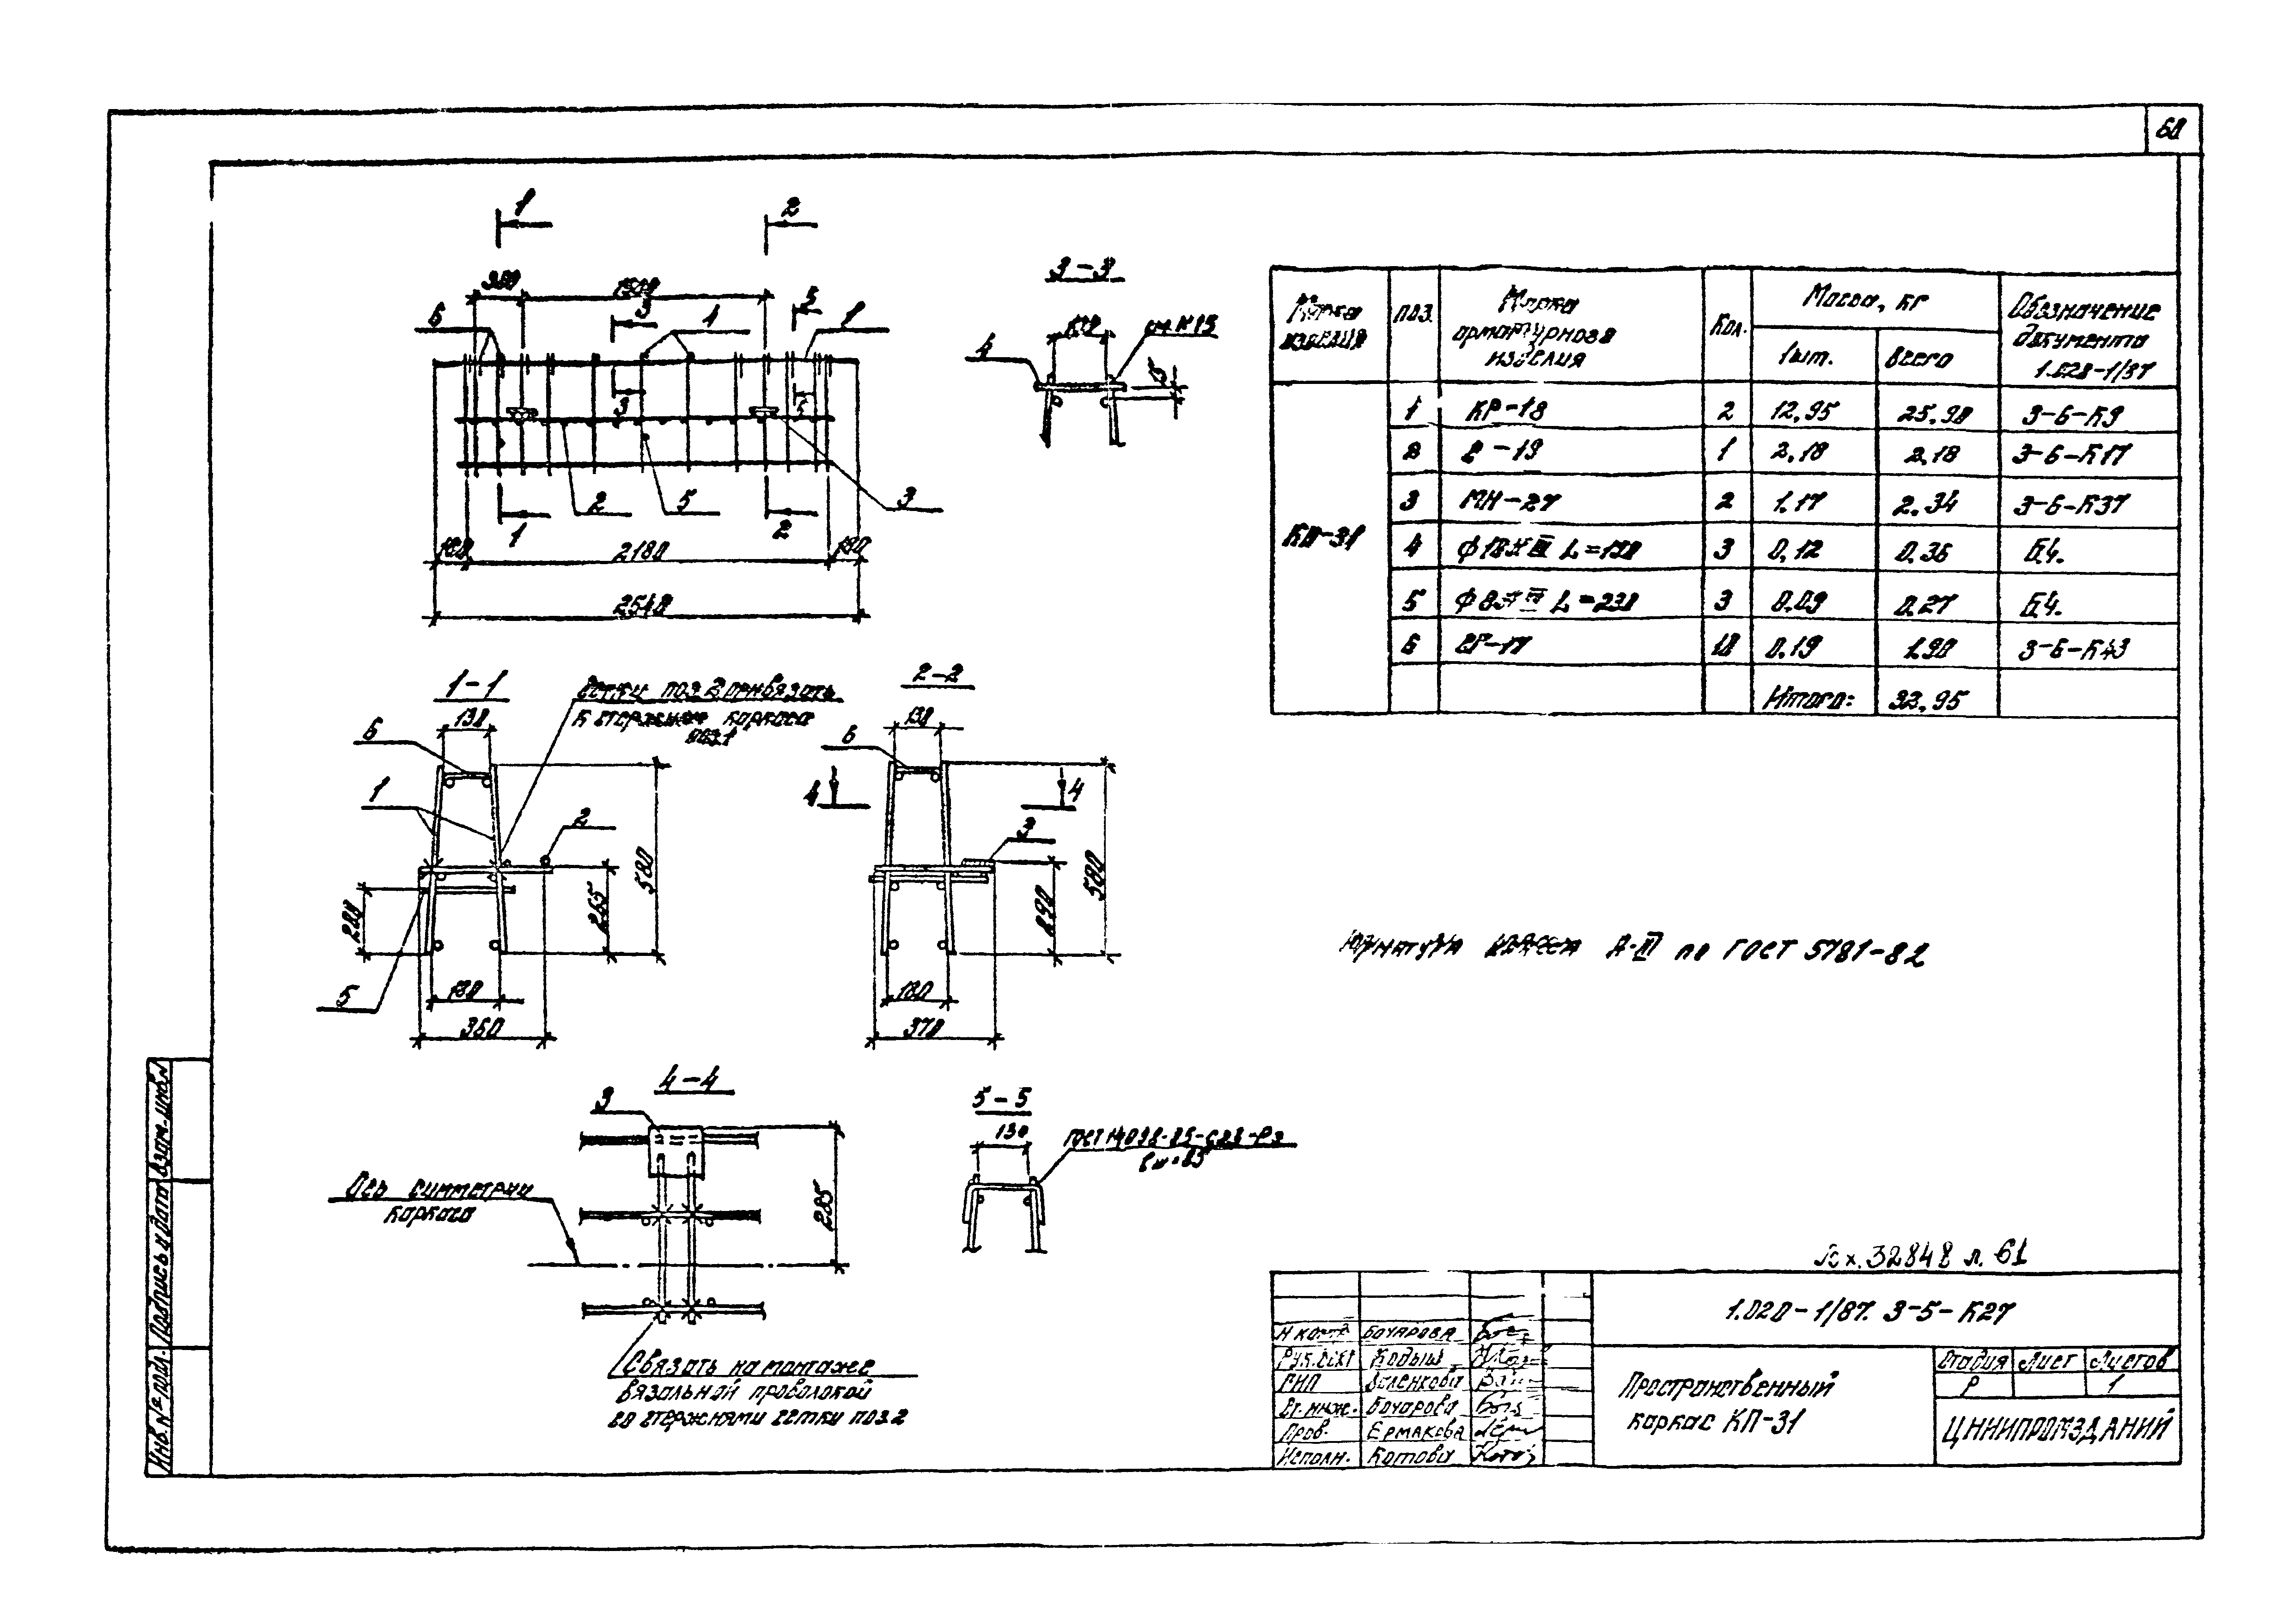 60
1
2
300
1500
5
6
3
4
1
3
5
1
2
5
2
3
180
2180
180
2540
3-3
130
4
15
Марка изделия
поз.
Марка арматурного изделия
Кол.
Масса, кг
1шт.
Всего
Обозначение документа 1.020-1/87
КП-31
1 КР-18 2 12,95 25,90 3-6-К9
2 С-19 1 2,18 2,18 3-6-К17
3 МН-27 2 1.17 2.34 3-6-К37
4 L=190 3 0,12 0.36 Б.4.
5 L=230 3 0.09 0.27 Б.4.
6 СГ-17 10 0.19 1.90 3-6-К43
Итого: 32,95
1-1
Сетки поз.2 привязать
к стержням каркаса
поз.1
130
6
1
2
200
265
580
5
180
360
2-2
130
6
4
4
3
290
580
180
370
Арматура класса А-III по ГОСТ 5781-82
4-4
3
285
Ось симметрии
каркаса
Связать на монтаже
вязальной проволокой
со стержнями сетки поз.2
5-5
130
32848 л. 61
1.020-1/87. 3-5-К27
Н.контр. Бочарова
Кодыш
ГИП
Ст. инж. Бочарова
Пров. Ермакова
Исполн. Котова
Пространственный
каркас КП-31
Стадия Лист Листов
Р 1
ЦНИИПРОМЗДАНИЙ
Взам. инв.№
Подпись и дата
Инв. № подл.